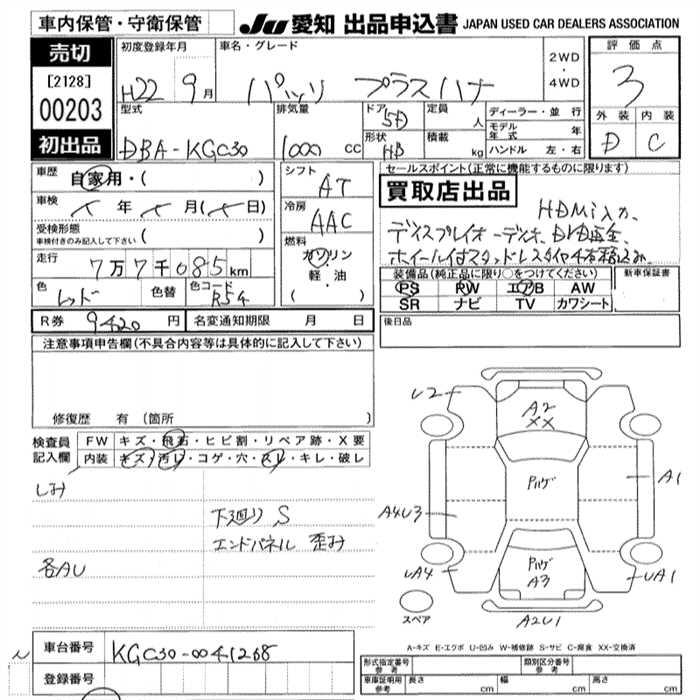 車内保管・守衛保管
JU 愛知 出品申込書 JAPAN USED CAR DEALERS ASSOCIATION
売切
[2128]
00203
初出品
初度登録年月
H22 9月
車名・グレード
パッソ プラスハナ
2WD
・
4WD
評価点
3
外装 内装
D C
型式
DBA-KGC30
排気量
1000 cc
ドア
5D
形状
HB
定員
人
積載
kg
ディーラー・並行
モデル年式 年
ハンドル 左・右
車歴
自家用・( )
車検
年 月( 日)
受検形態
車検付きのみ記入して下さい ( )
走行
7万7千085km
色
レッド
色替
色コード
R54
シフト
AT
冷房
AAC
燃料
ガソリン
軽・油
( ・ )
セールスポイント(正常に機能するものに限ります)
買取店出品
HDMi入力、
ディスプレイオーディオ、DVD再生、
ホイール付スタッドレスタイヤ4本積込み、
装備品(純正品に限り○をつけてください)
PS PW エアB AW
SR ナビ TV カワシート
新車保証書
R券 9420 円
名変通知期限 月 日
後日品
注意事項申告欄(不具合内容等は具体的に記入して下さい)
修復歴 有 (箇所 )
検査員記入欄
FW キズ・飛石・ヒビ割・リペア跡・X要
内装 キズ・汚レ・コゲ・穴・スレ・キレ・破レ
しみ
下廻り S
エンドパネル 歪み
各AU
U2
A2
XX
Pハゲ
A1
A4U3
UA4
Pハゲ
A3
UA1
スペア
A2U1
A-キズ E-エクボ U-凹み W-補修跡 S-サビ C-腐食 XX-交換済
車台番号 KGC30-0041268
登録番号
形式指定番号
参考
類別区分番号
参考
車庫証明用
参考
長さ cm 幅 cm 高さ cm